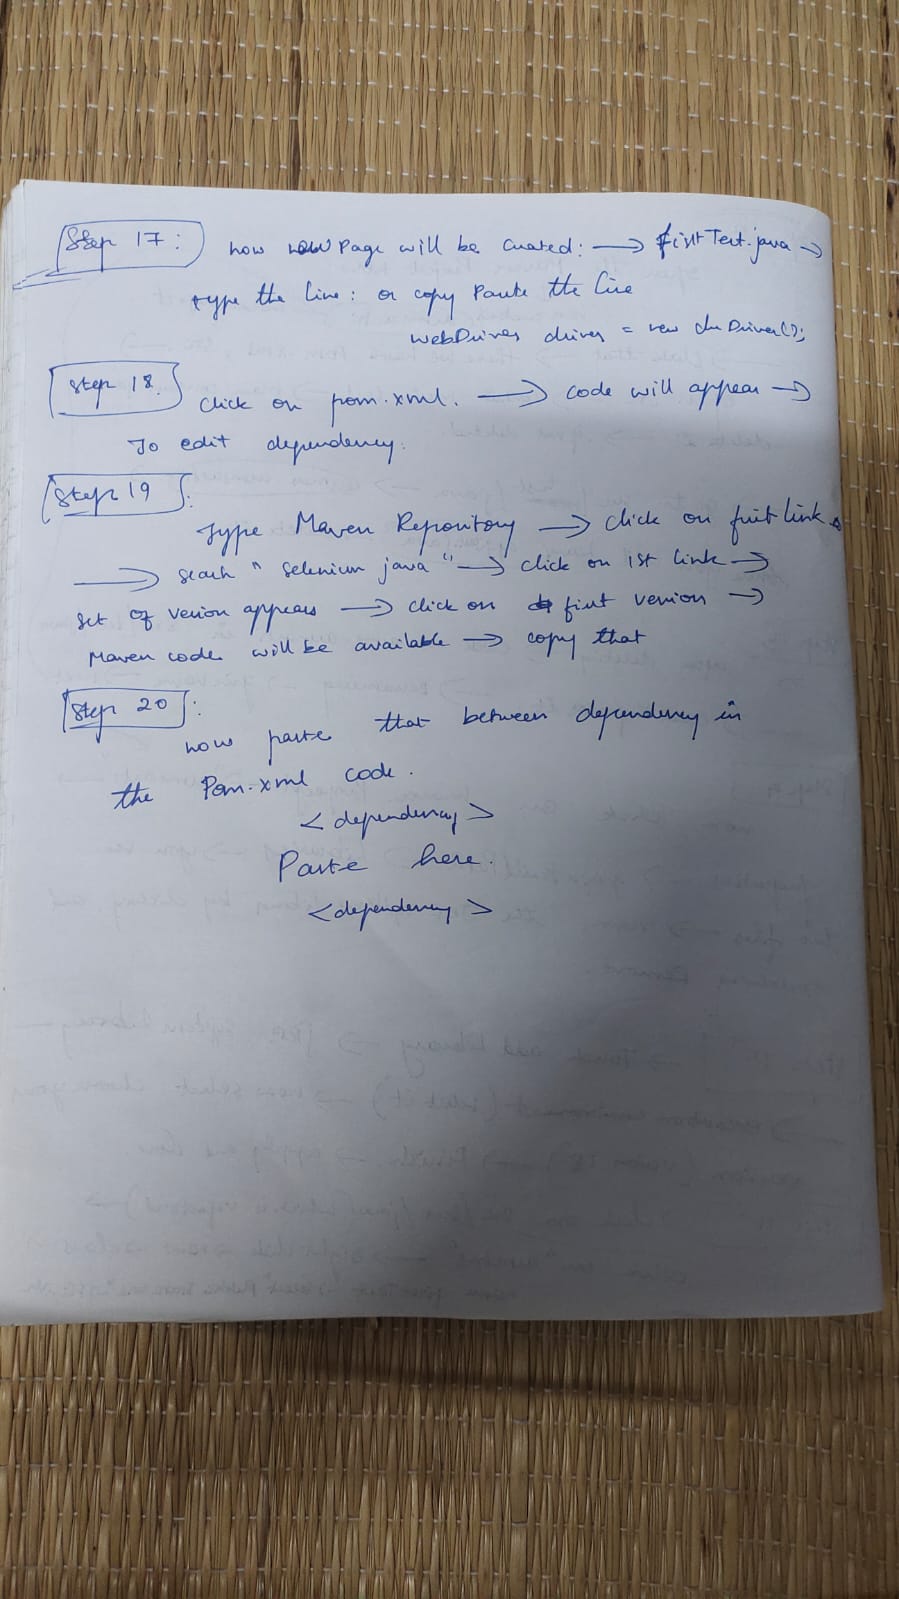 Step 17: now new page will be created: → firstTest.java →
type the line: or copy Paste the line
WebDriver driver = new Driver();
Step 18. click on pom.xml. → code will appear →
To edit dependency.
Step 19:
Type Maven Repository → click on first link
→ search " selenium java " → click on 1st link →
set of version appears → click on first version →
Maven code will be available → copy that
Step 20:
now paste that between dependency in
the Pom.xml code.
< dependency >
Paste here.
< dependency >